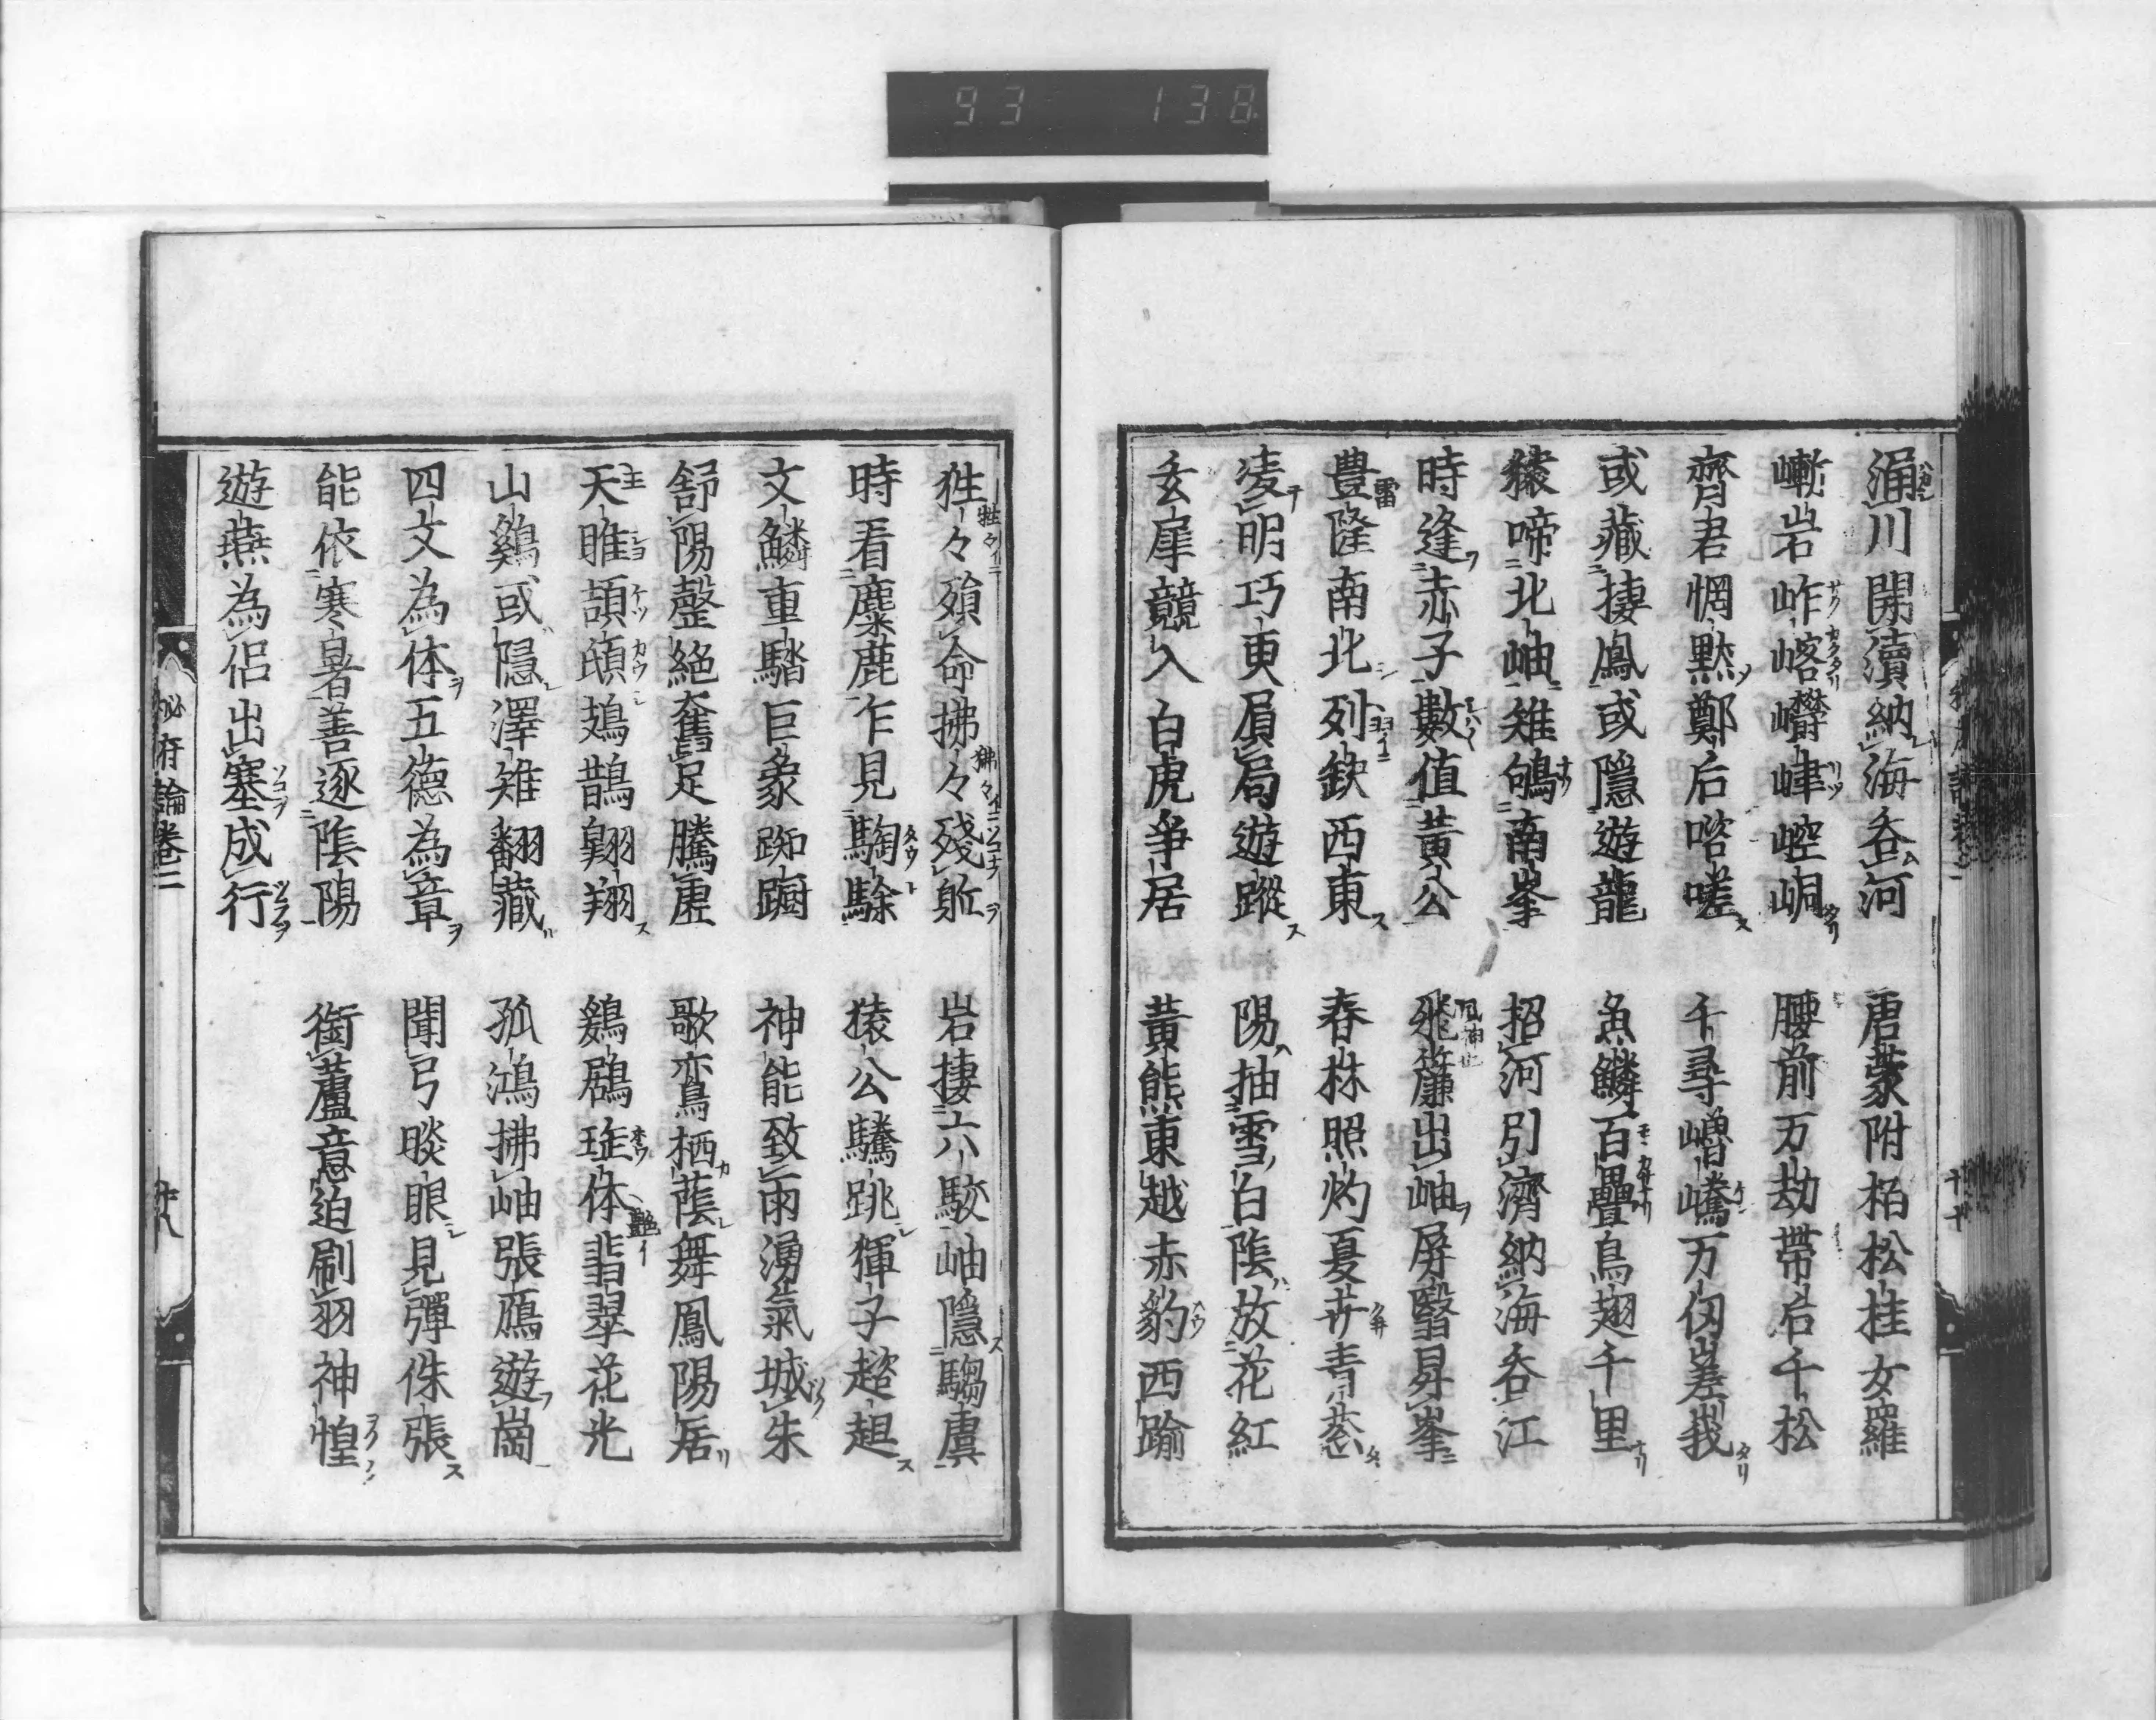 93 138
涌川閉瀆納海呑河 唐蒙附柏松挂女羅
嶃岩岞㟯巑嵂崆峒 腰前万劫帶右千松
齊君惆黙鄭后喀嗟 千尋嶒嶠万仭嵳峩
或藏捿鳳或隱遊龍 魚鱗百疊鳥翅千里
猿啼北岫雉鴝南峯 招河引濟納海呑江
時逢赤子數值黃公 飛簾出岫屏翳昇峯
豊隆南北列缺西東 春株照灼夏卉青葱
凌明巧東屓局遊蹤 陽抽雪白陰放花紅
玄犀競入白虎爭居 黃熊東越赤豹西踰
狌々殞命拂々殘躯 岩捿六駮岫隱騶虞
時看麋鹿乍見騊駼 猿公騰跳猓子趦趄
文鱗重驓巨象踟躕 神能致雨湧氣城朱
舒陽聲絕奮足騰虛 歌鸞栖蔭舞鳳陽居
天睢頡頏鳩鵲翺翔 鷄鶋琁体翡翠花光
山鷄或隱澤雉翻藏 孤鴻拂岫張鴈遊崗
四文為体五德為章 聞弓晱眼見彈侏張
能依寒暑善逐陰陽 銜蘆意迫刷羽神惶
遊燕為侶出塞成行
秘府論卷二